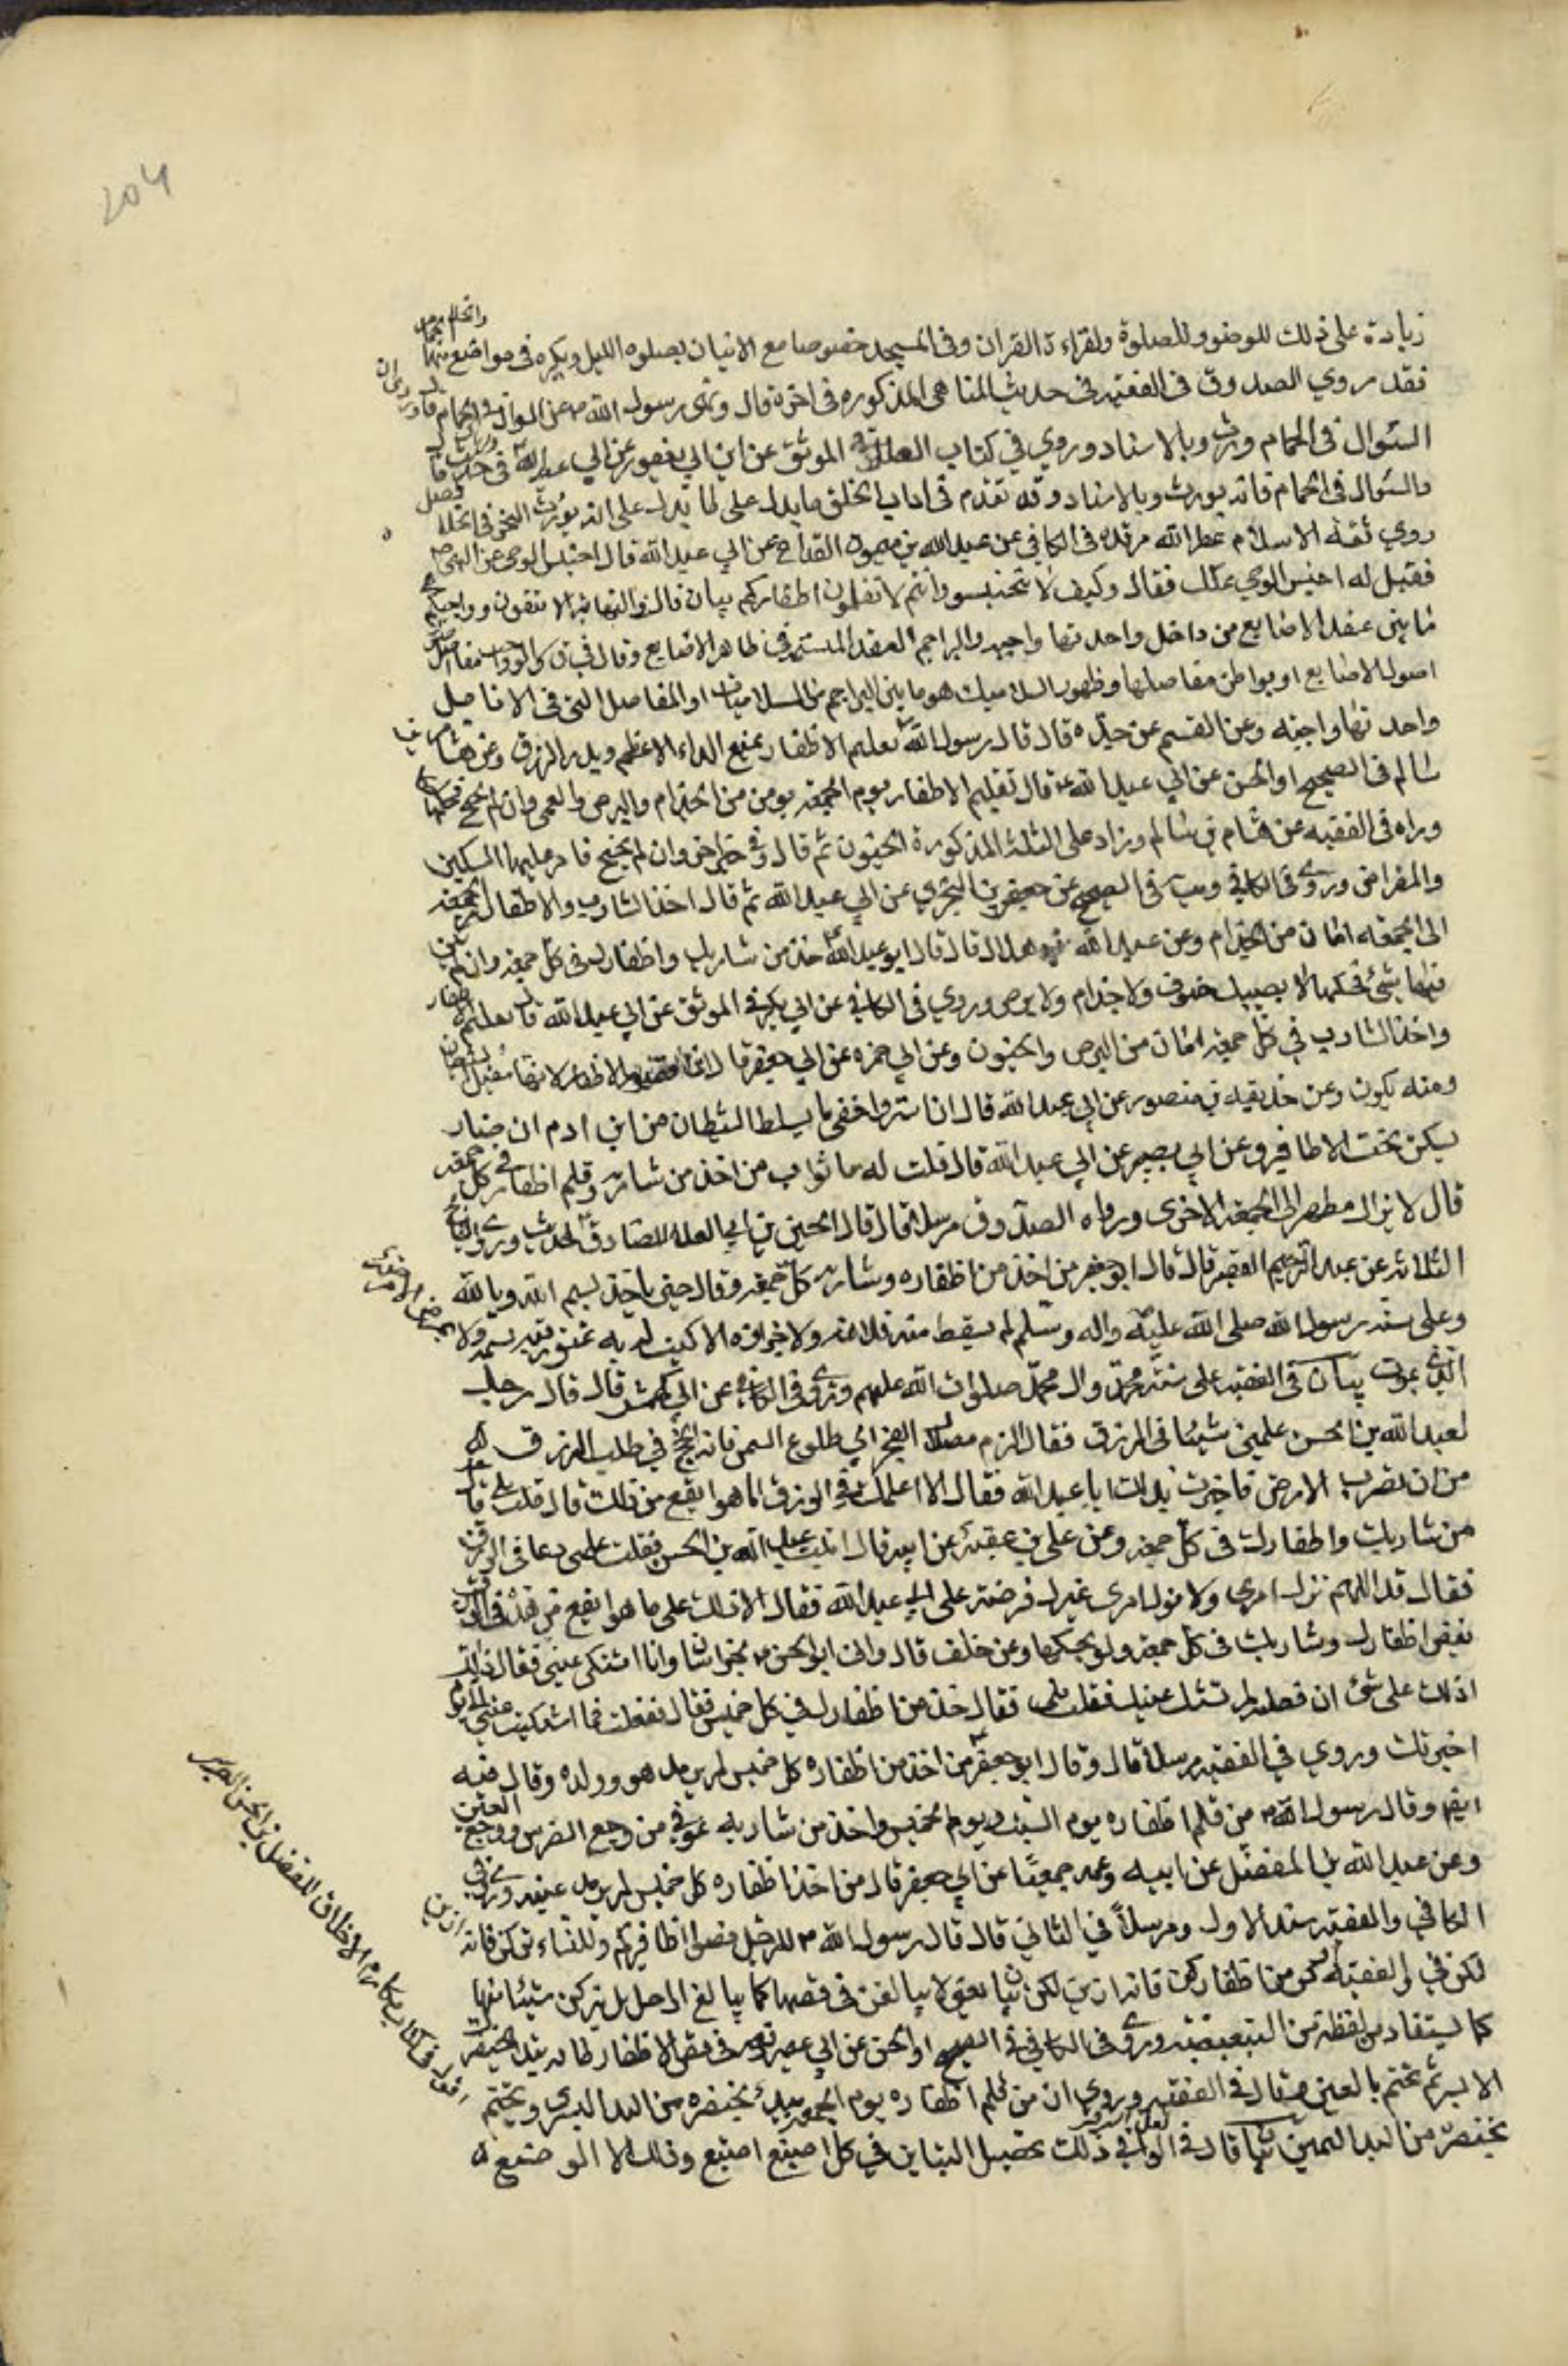 204
زيادة على ذلك للوضوء وللصلوة ولقراءة القران وفى المسجد خصوصا مع الاتيان بصلوه الليل ويكره فى مواضع منها
فقد روي الصدوق فى الفقيه فى حديث المناهى المذكوره فى اخره قال ونهى رسول الله ص عن السواك فى الحمام
السواك فى الحمام وبالاسناد وروي في كتاب العلل الموثق عن ابن ابى يعفور عن ابي عبد الله فى حديث قال
والسواك فى الحمام فانه يورث وبالاسناد وقد تقدم فى اداب الخلق ما يدل على انه يورث البخر فى الخلا فصل
روي ثقة الاسلام عطر الله مرقده فى الكافي عن عبد الله بن ميمون القداح عن ابي عبد الله قال احتبس الوحي عن النبى ص
فقيل له احتبس الوحي عنك فقال وكيف لا يحتبس وانتم لا تقلمون اظفاركم بيان قال فى النهايه لا تنقون رواجبكم
ما بين عقد الاصابع من داخل واحدتها واجبه والبراجم العقد المتشنجه فى ظاهر الاصابع وقال فى ق
اصول الاصابع او بواطن مفاصلها وظهور السلاميات هو ما بين البراجم من السلاميات او المفاصل التى فى الانامل
واحدتها واجبه وعن القسم عن جده قال قال رسول الله تقليم الاظفار يمنع الداء الاعظم ويدر الرزق وعن هشام بن
سالم فى الصحيح او الحسن عن ابي عبد الله ع قال تقليم الاظفار يوم الجمعه يومن من الجذام والبرص والعمى وان لم تحتج فحكها
ورواه فى الفقيه عن هشام بن سالم وزاد على الثلث المذكورة الجنون ثم قال وفى خبر اخر وان لم تحتج فامر عليها السكين
والمقراض وروى فى الكافى فى الصحيح عن حفص بن البختري عن ابي عبد الله ثم قال اخذ الشارب والاظفار من الجمعه
الى الجمعه امان من الجذام وعن عبد الله بن هلال قال قال ابو عبد الله خذ من شاربك واظفارك فى كل جمعه وان لم يكن
فيها شئ فحكها لا يصيبك جنون ولا جذام ولا برص وروي فى الكافى عن ابي بكير فى الموثق عن ابي عبد الله قال تقليم الاظفار
واخذ الشارب فى كل جمعه امان من البرص والجنون وعن ابي حمزه عن ابي جعفر قال انما قصوا الاظفار لانها مقيل الشيطان
ومنه يكون وعن حذيفه بن منصور عن ابي عبد الله قال ان استر واخفى ما يسلط الشيطان من ابن ادم ان صار
يسكن تحت الاظافير وعن ابي بصير عن ابي عبد الله قال قلت له ما ثواب من اخذ من شاربه وقلم اظفاره فى كل جمعه
قال لا يزال مطهرا الى الجمعه الاخرى ورواه الصدوق مرسلا قال قال الحسين بن ابي العلا للصادق الحديث وروى المشايخ
الثلاثه عن عبد الرحيم القصير قال قال ابو جعفر من اخذ من اظفاره وشاربه كل جمعه وقال حين ياخذ بسم الله وبالله
وعلى سنه رسول الله صلى الله عليه واله وسلم لم يسقط منه قلامه ولا جزازه الا كتب له به عتق نسمه ولا يمرض الا مرضه
الذى يموت بيان فى الفقيه على سنه محمد وال محمد صلوات الله عليهم وروى فى الكافى عن ابي كهمش قال قال رجل
لعبد الله بن الحسن علمني شيئا فى الرزق فقال الزم مصلاك الفجر الي طلوع الشمس فانه انجح في طلب الرزق
من ان تضرب الارض فاخبرت بذلك ابا عبد الله فقال الا اعلمك فى الرزق ما هو انفع من ذلك قال قلت بلى قال خذ
من شاربك واظفارك فى كل جمعه وعن على بن عقبه عن ابيه قال اتيت عبد الله بن الحسن فقلت علمني دعا فى الرزق
فقال قل اللهم تول امري ولا تول امري غيرك فعرضته على ابي عبد الله فقال الا ادلك على ما هو انفع من هذا فى الرزق
تقص اظفارك وشاربك فى كل جمعه ولو بحكها وعن خلف قال راني ابو الحسن ع بخراسان وانا اشتكي عيني فقال الا
ادلك على شئ ان فعلته لم تشتك عينيك فقلت بلى فقال خذ من اظفارك في كل خميس فقال ففعلت فما اشتكيت عيني الى يوم
اخبرتك وروي في الفقيه مرسلا قال وقال ابو جعفر من اخذ من اظفاره كل خميس لم يرمد هو وولده وقال فيه
ايضا وقال رسول الله ص من قلم اظفاره يوم السبت ويوم الخميس واخذ من شاربه عوفي من وجع الضرس ووجع العينين
وعن عبد الله بن المفضل عن ابيه وعمه جميعا عن ابي جعفر قال من اخذ اظفاره كل خميس لم يرمد عينه وروى فى
الكافي والفقيه مسند الاول ومرسلا في الثاني قال قال رسول الله ص للرجال قصوا اظافيركم وللنساء اتركن فانه ازين
لكن في والفقيه اتركن من اظفاركن فانه ازين لكن بيان يعنى لا يبالغن فى قصها كما يبالغ الرجل بل يتركن شيئا منها
كما يستفاد من لفظة من التبعيضيه وروى فى الكافى فى الصحيح او الحسن عن ابن ابي عمير رفعه فى قص الاظفار تبدا بخنصرك
الايسر ثم تختم باليمين وقال فى الفقيه وروي ان من قلم اظفاره يوم الجمعه يبدا بخنصره من اليد اليسرى ويختم
بخنصره من اليد اليمين بيان قال فى الوافى لعل السر فى ذلك تحصيل التيامن في كل اصبع اصبع وذلك لان الوضع
اقول فى كتاب مكارم الاخلاق للفضل بن الحسن الطبرسي